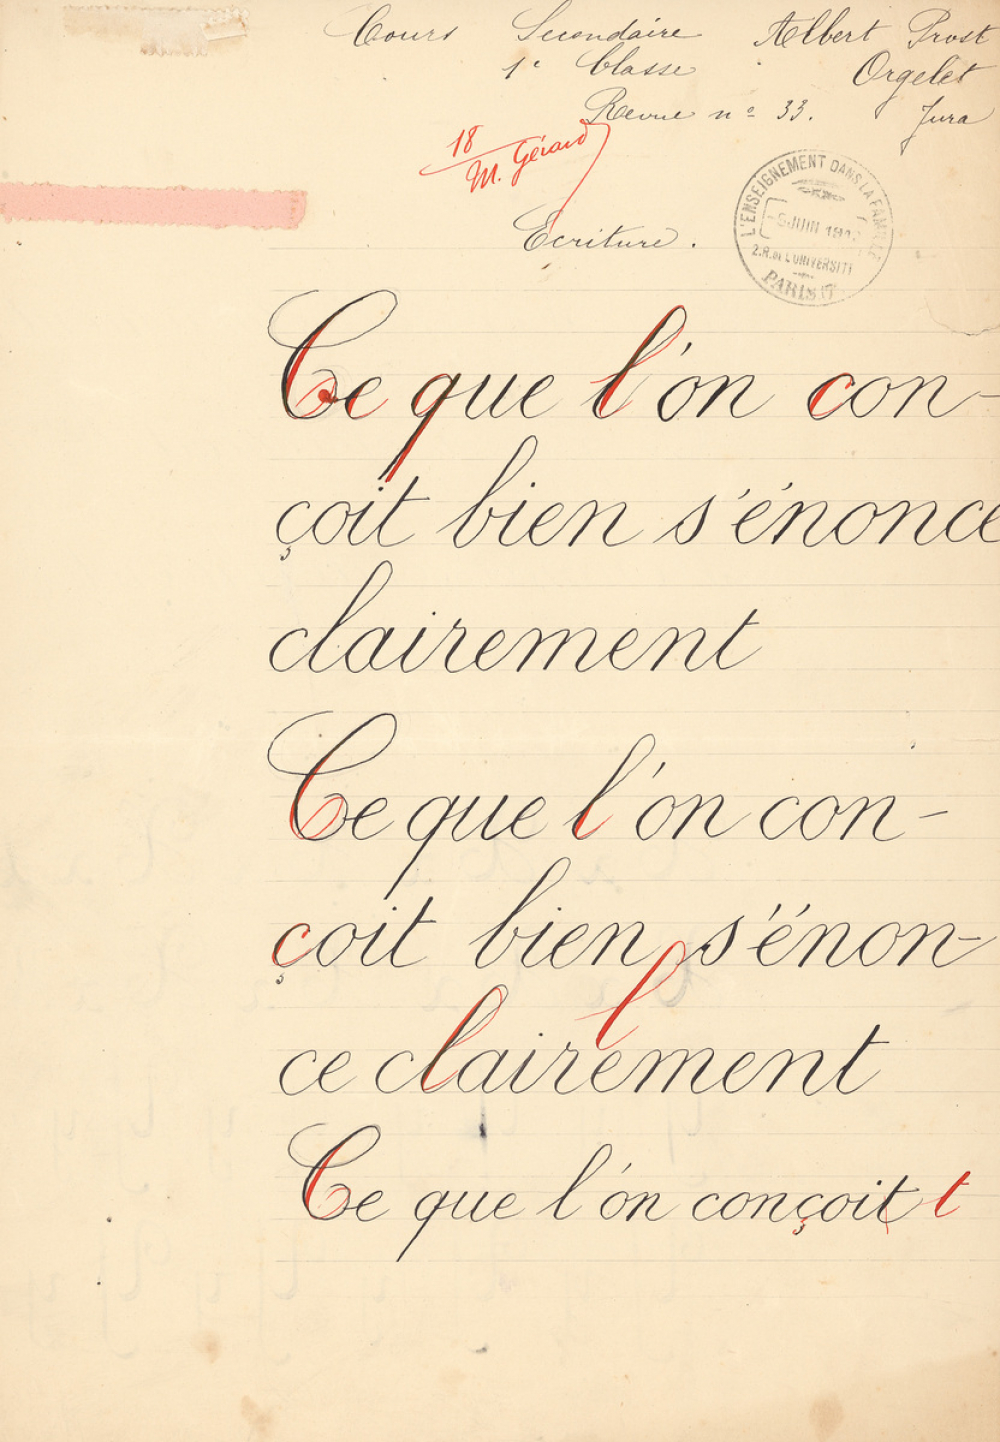 Cours Secondaire Albert Prost
1e Classe Orgelet
Revue no 33. Jura
18
M. Gérard
Ecriture.
L'ENSEIGNEMENT DANS LA FAMILLE
JUIN
2.R. DE L'UNIVERSITÉ
PARIS
Ce que l'on con-
çoit bien s'énonce
clairement
Ce que l'on con-
çoit bien s'énon-
l
ce clairement
Ce que l'on conçoit t